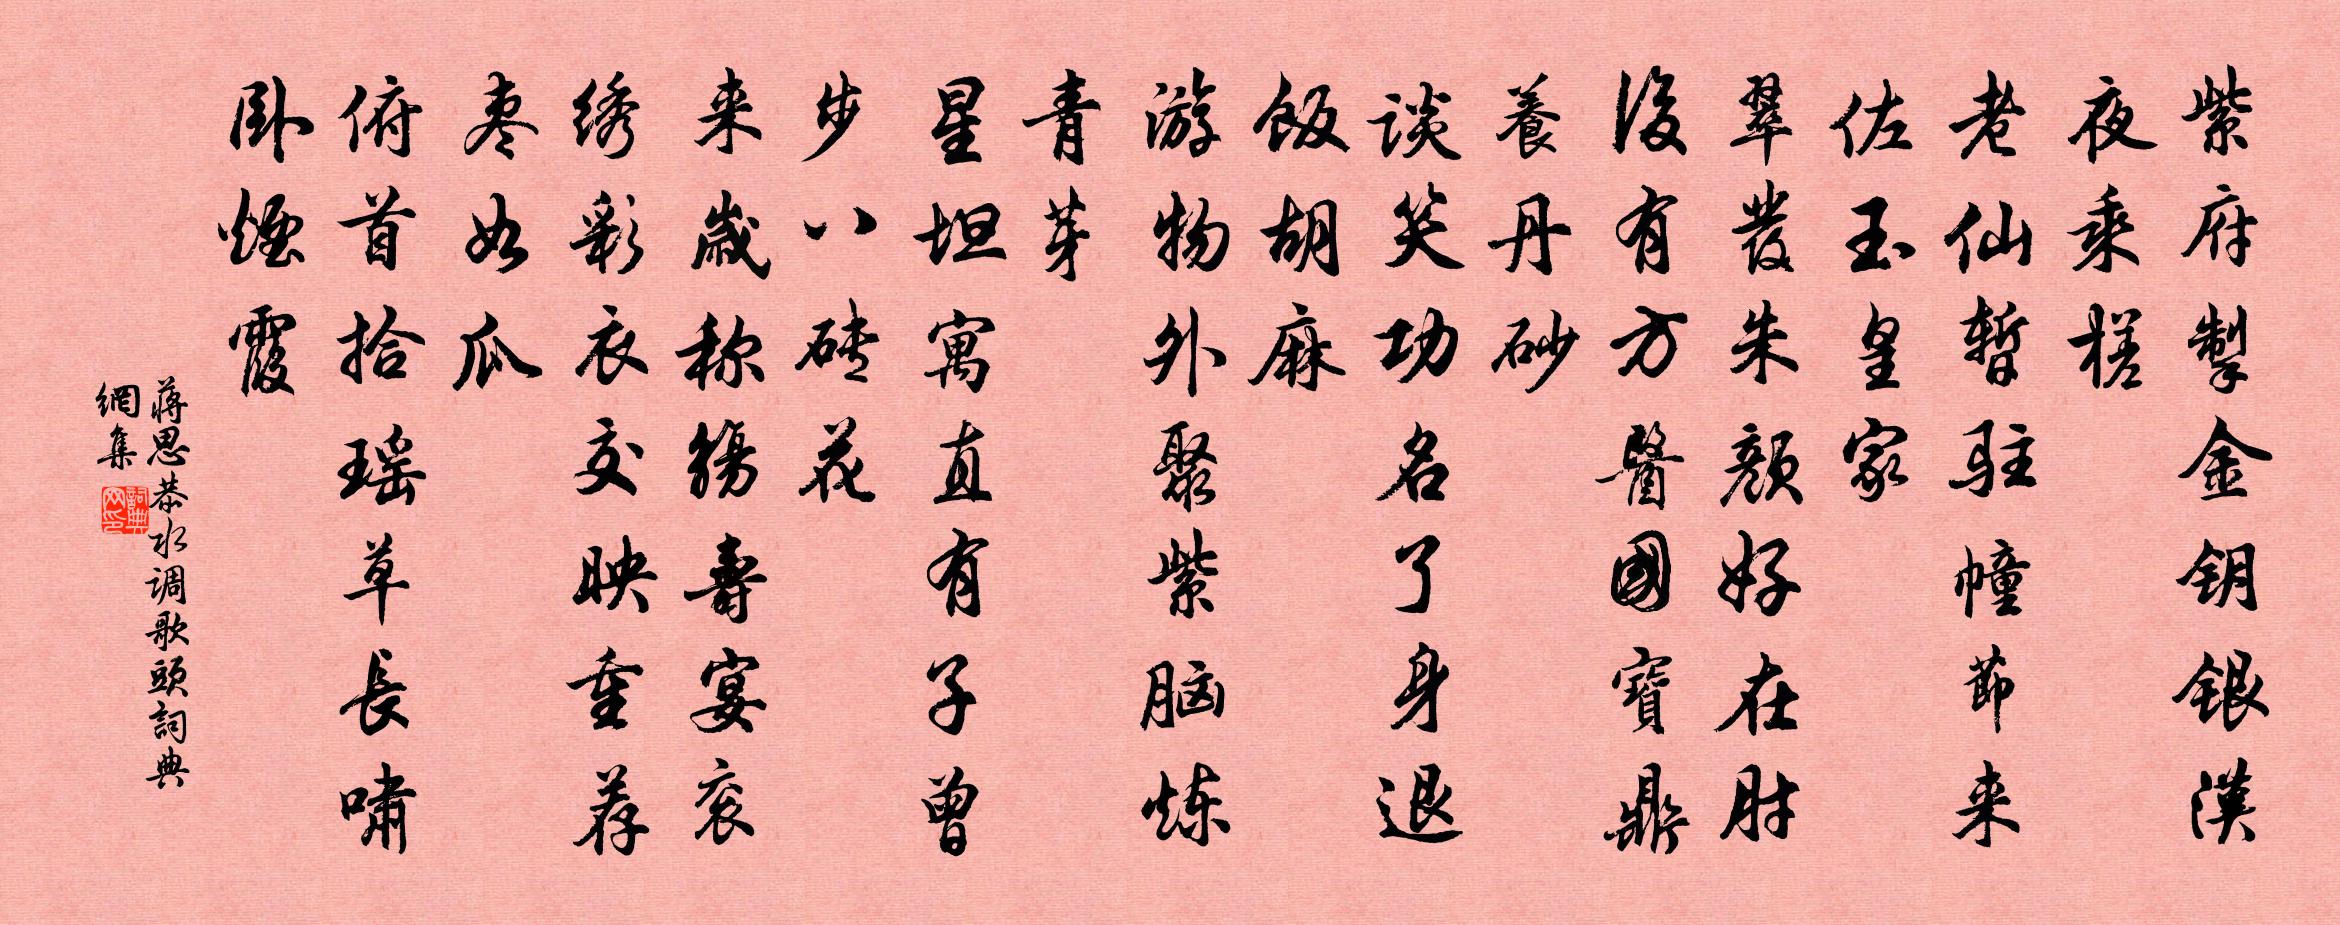 紫府掣金钥银漢
夜乘槎
老仙暫駐幢節来
佐玉皇家
翠發朱顏好在肘
後有方醫國寶鼎
養丹砂
谈笑功名了身退
飯胡麻
游物外聚紫脑炼
青芽
星坦寓直有子曾
步八砖花
来歲称觴壽宴衮
绣彩衣交映重荐
枣如瓜
俯首拾瑶草長啸
臥煙霞
蒋思恭水调歌頭詞典
網集
詞典
网印